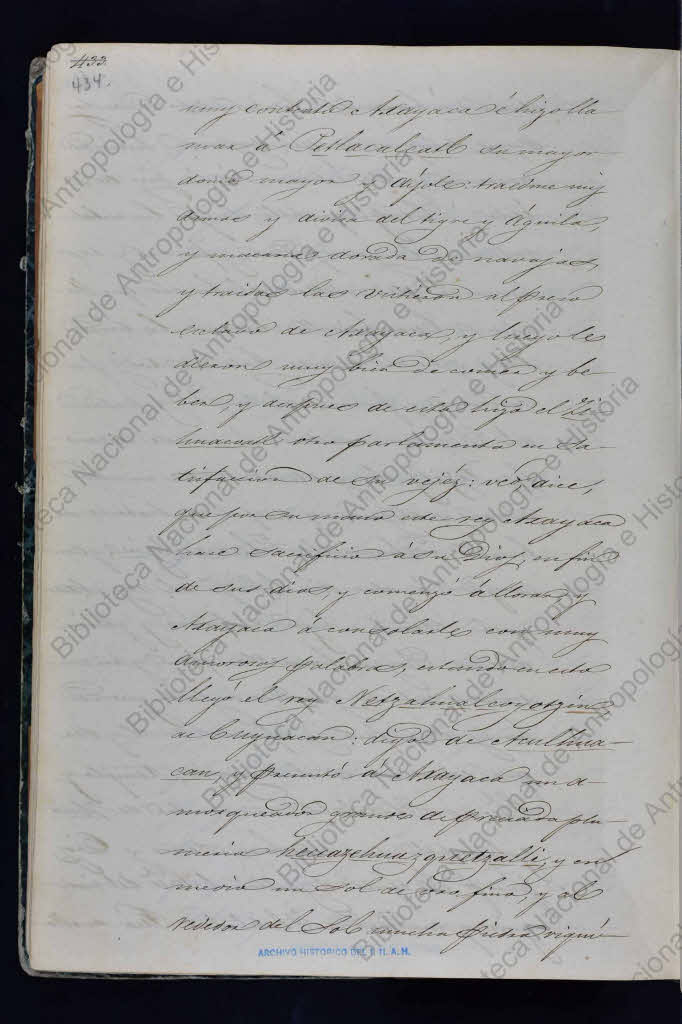 433
434.
muy contento Axayaca é hizo lla
mar á Petlacalcatl su mayor
domo mayor y díjole: traedme mis
armas y divisa del tigre y águila,
y macana dorada de navajas,
y traidas las vistieron al preso
esclavo de Axayaca, y luego le
dieron muy bien de comer y be
ber, y despues de esto hizo el Zi
huacoatl otro parlamento en sa
tisfaccion de su vejéz: veo, dice,
que por su mano este rey Axayaca
hace sacrificio á su Dios, en fin
de sus dias, y comenzó á llorar, y
Axayaca á consolarle con muy
amorosas palabras, estando en esto
llegó el rey Netzahualcoyotzin
de Cuyuacan: digo de Aculhua-
can, y presentó á Axayaca un a
mosqueador grande de preciada plu
meria heuazehuaz quetzalli, y en
medio un sol de oro fino, y al
rededor del sol mucha piedra riquí-
ARCHIVO HISTORICO DEL I. N. A. H.
Biblioteca Nacional de Antropología e Historia